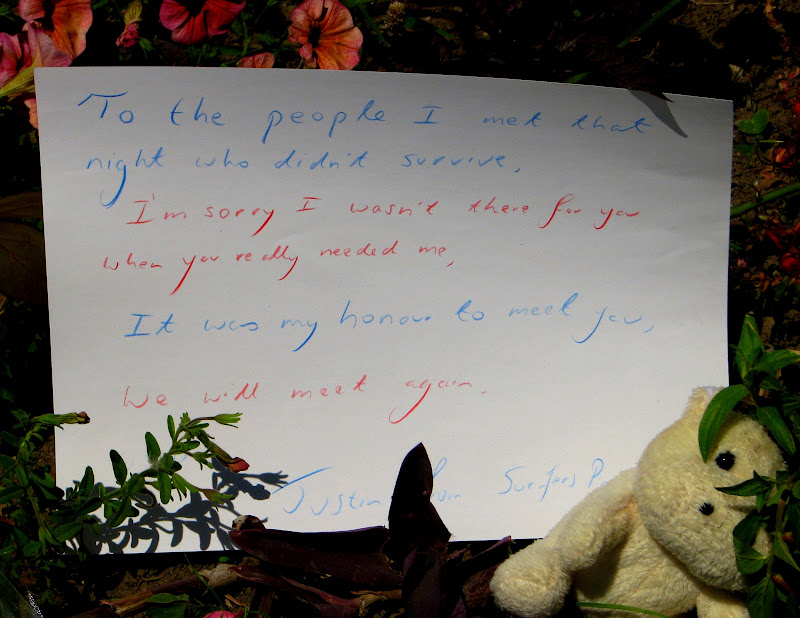 To the people I met that
night who didn't survive,
I'm sorry I wasn't there for you
when you really needed me,
It was my honour to meet you,
We will meet again.
Justin Surfers